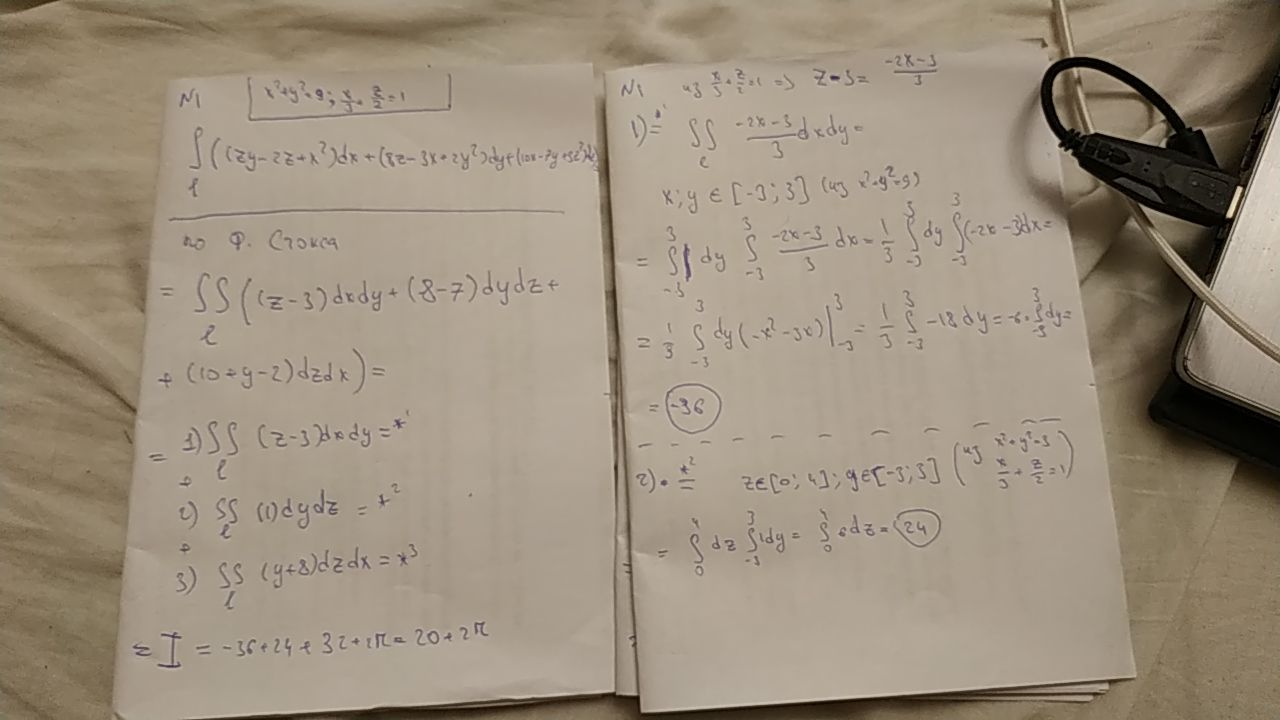 N1 x²+y²=9; x/3+z/2=1
∫((zy-2z+x²)dx+(8z-3x+2y²)dy+(10x-7y+3z²)dz)
l
по ф. Стокса
= ∬((z-3)dxdy+(8-7)dydz+
l
+(10+y-2)dzdx)=
= 1)∬(z-3)dxdy=*¹
l
+
2)∬(1)dydz=*²
l
+
3)∬(y+8)dzdx=*³
l
= I = -36+24+32+2π=20+2π
N1 из x/3+z/2=1 => z-3=(-2x-3)/3
1)=*¹ ∬(-2x-3)/3dxdy=
l
x;y∈[-3;3] (из x²+y²=9)
= ∫₋₃³dy∫₋₃³(-2x-3)/3dx=1/3∫₋₃³dy∫₋₃³(-2x-3)dx=
= 1/3∫₋₃³dy(-x²-3x)|₋₃³=1/3∫₋₃³-18dy=-6·∫₋₃³dy=
= -36
2)*²= z∈[0;4]; y∈[-3;3] (из x²+y²=3
x/3+z/2=1)
= ∫₀⁴dz∫₋₃³1dy=∫₀⁴6dz=24